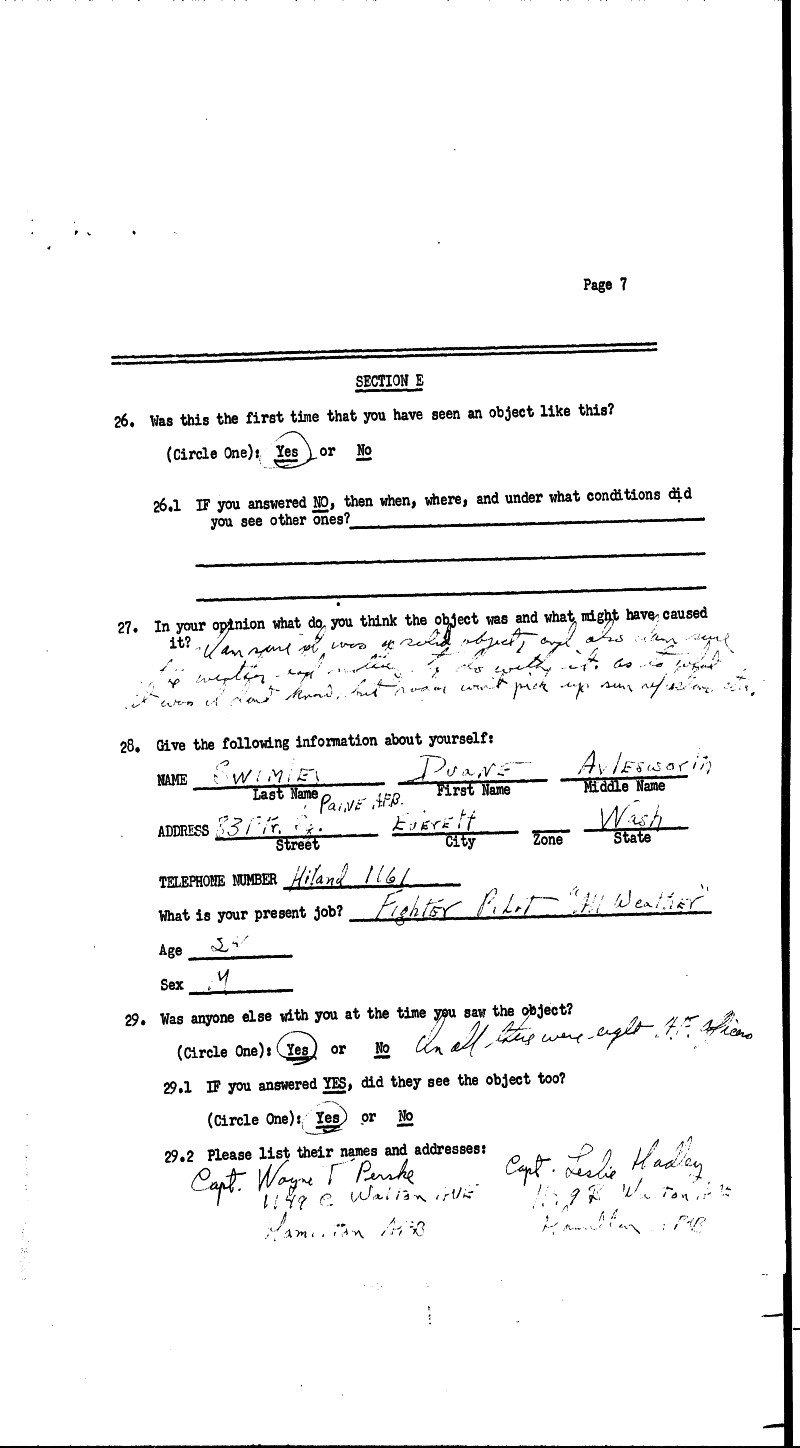 Page 7
SECTION E
26. Was this the first time that you have seen an object like this?
(Circle One): Yes or No
26.1 IF you answered NO, then when, where, and under what conditions did
you see other ones?
27. In your opinion what do you think the object was and what might have caused
it? I am sure it was a solid object, and also I am sure
the weather had nothing to do with it. as to what
it was I dont know, but radar wont pick up sun reflections etc.
28. Give the following information about yourself:
NAME SWIMLEY DUANE AYLESWORTH
Last Name First Name Middle Name
PAINE AFB.
ADDRESS EVERETT Wash
Street City Zone State
TELEPHONE NUMBER Hiland 1161
What is your present job? Fighter Pilot "All Weather"
Age
Sex M
29. Was anyone else with you at the time you saw the object?
(Circle One): Yes or No In all there were eight A.F. officers
29.1 IF you answered YES, did they see the object too?
(Circle One): Yes or No
29.2 Please list their names and addresses:
Capt. Wayne T Perske Capt. Leslie Hadley
1149 C Walton AVE Walton AVE
Hamilton AFB Hamilton AFB